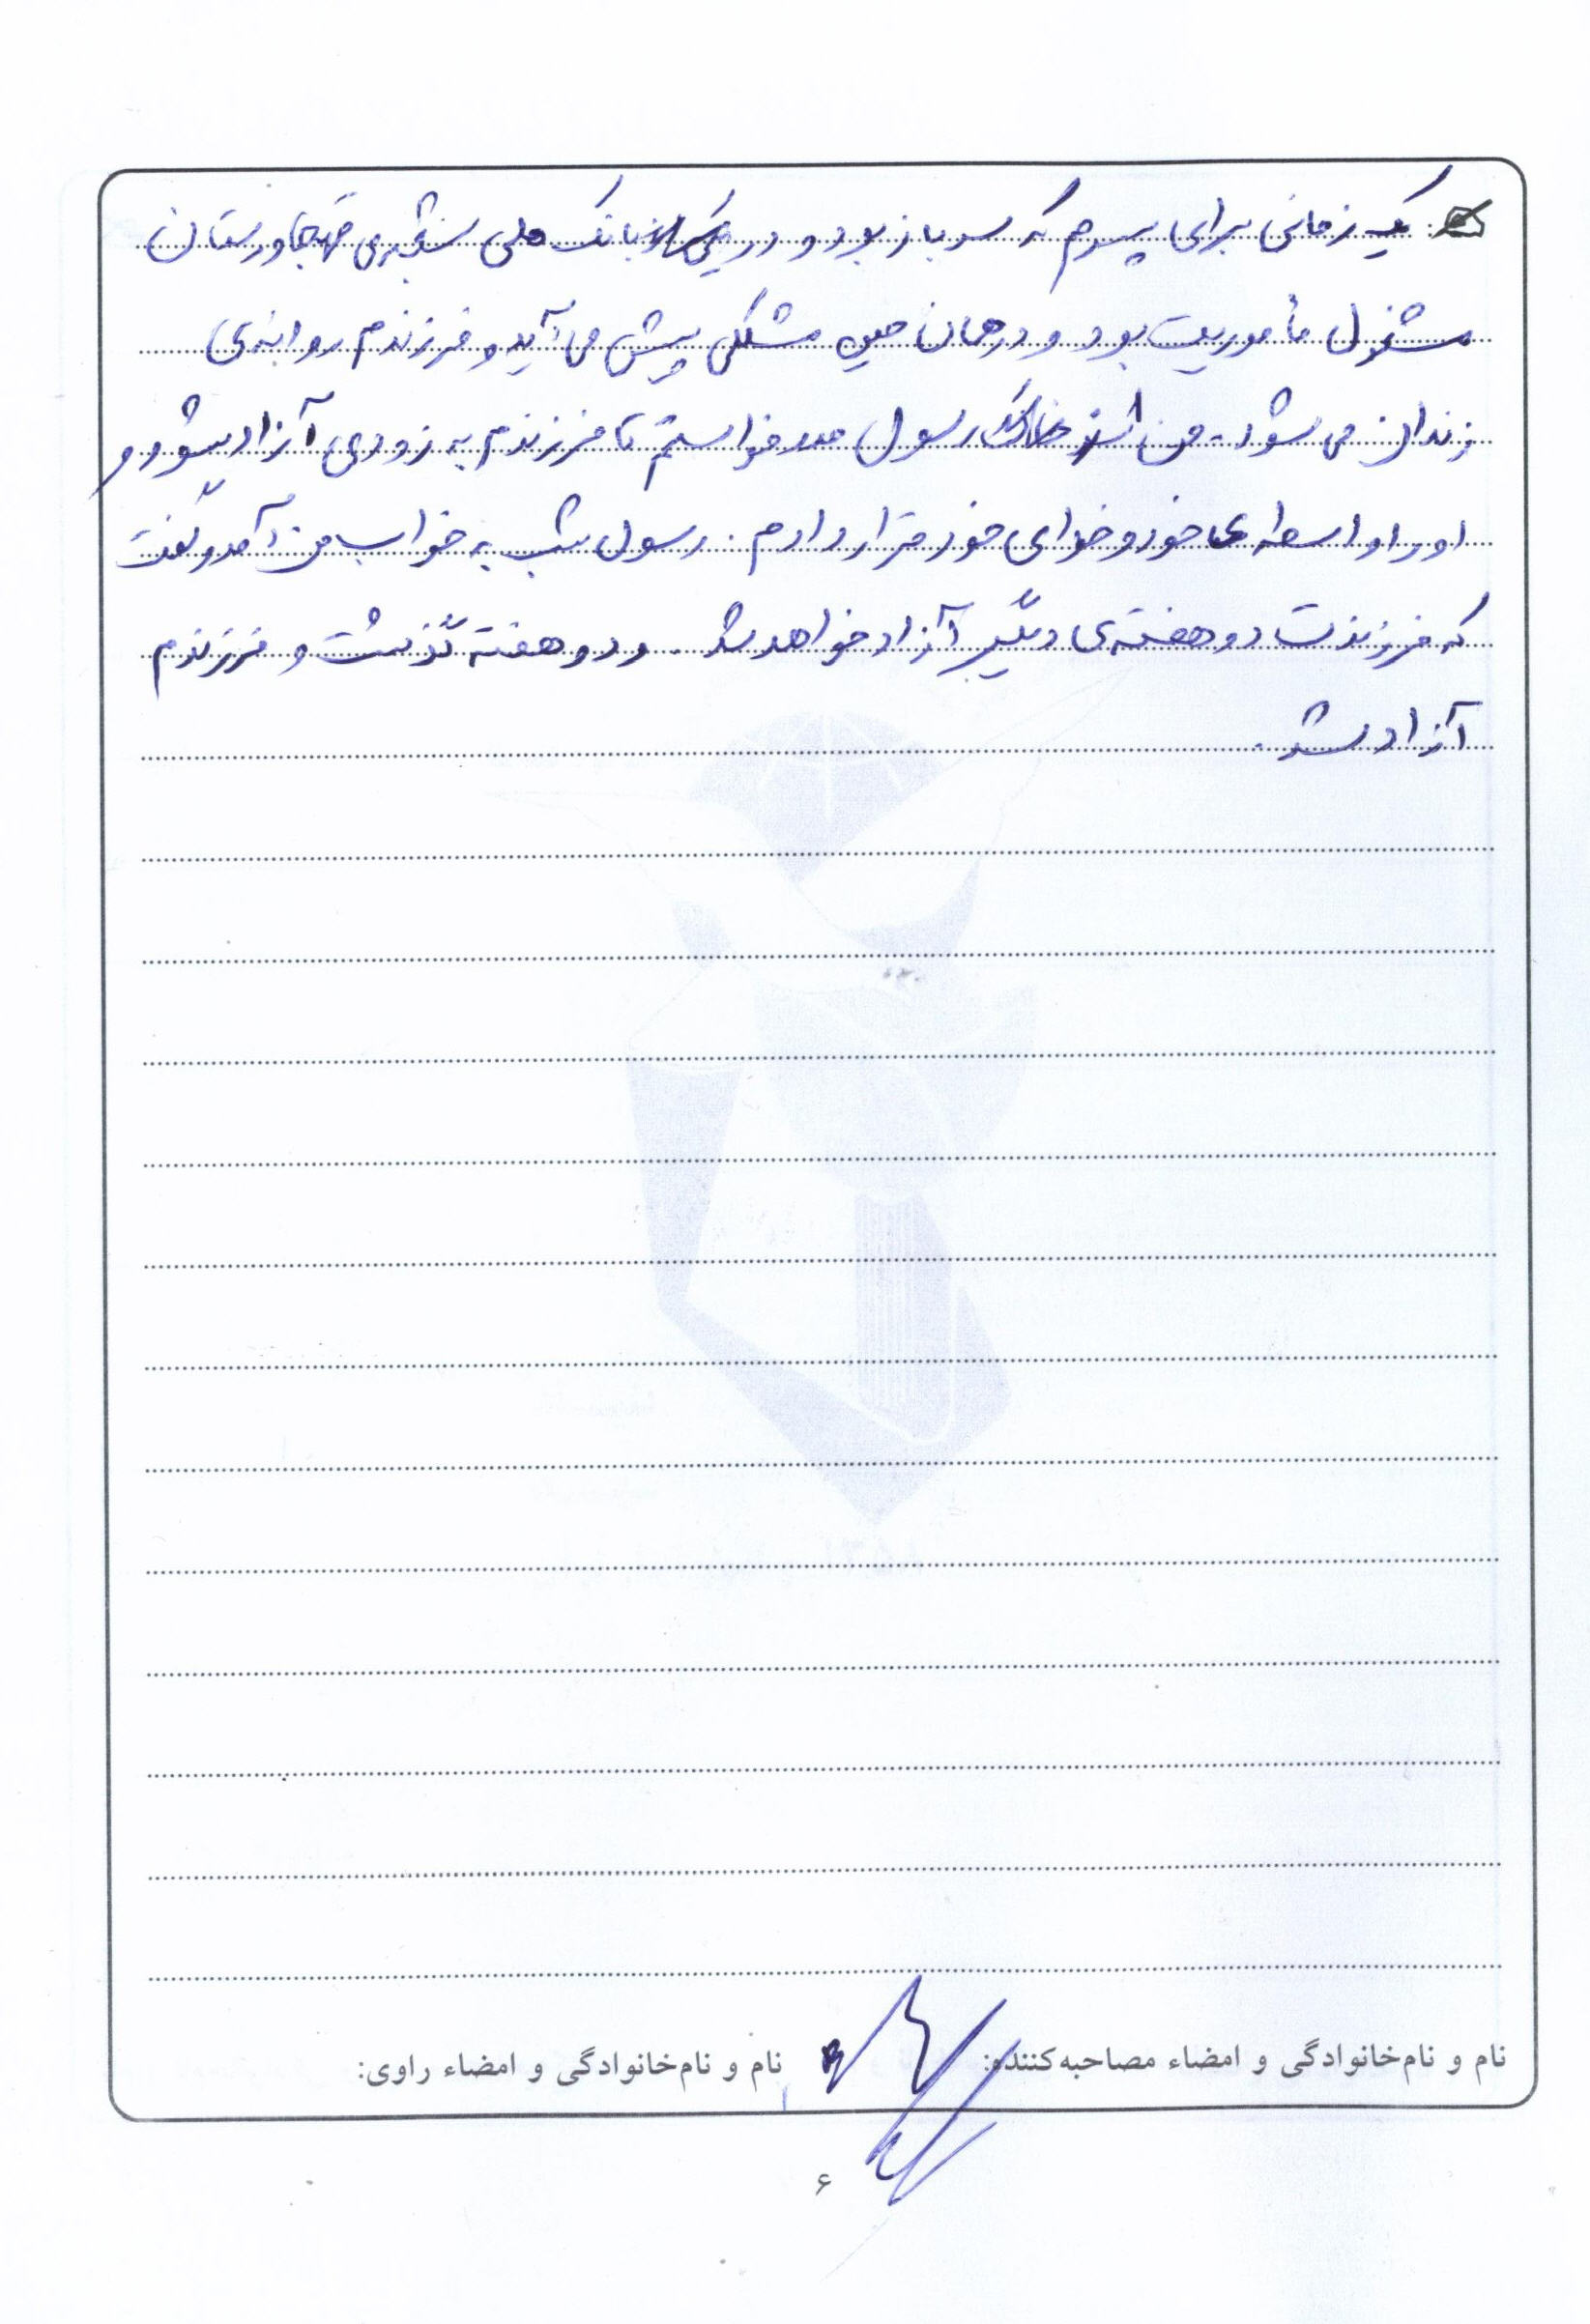 : یک زمانی برای پسرم که سرباز بود و در یکی از بانک ملی شعبه‌ی قهجاورستان
مشغول مأموریت بود و در همان حین مشکلی پیش می‌آید و فرزندم روانه‌ی
زندان می‌شود. من از رسول مدد خواستم تا فرزندم به زودی آزاد بشود و
او را واسطه‌ی خود و خدای خود قرار دادم. رسول شب به خواب من آمد و گفت
که فرزندت دو هفته‌ی دیگر آزاد خواهد شد. و دو هفته گذشت و فرزندم
آزاد شد.
نام و نام‌خانوادگی و امضاء مصاحبه‌کننده: نام و نام‌خانوادگی و امضاء راوی:
۶